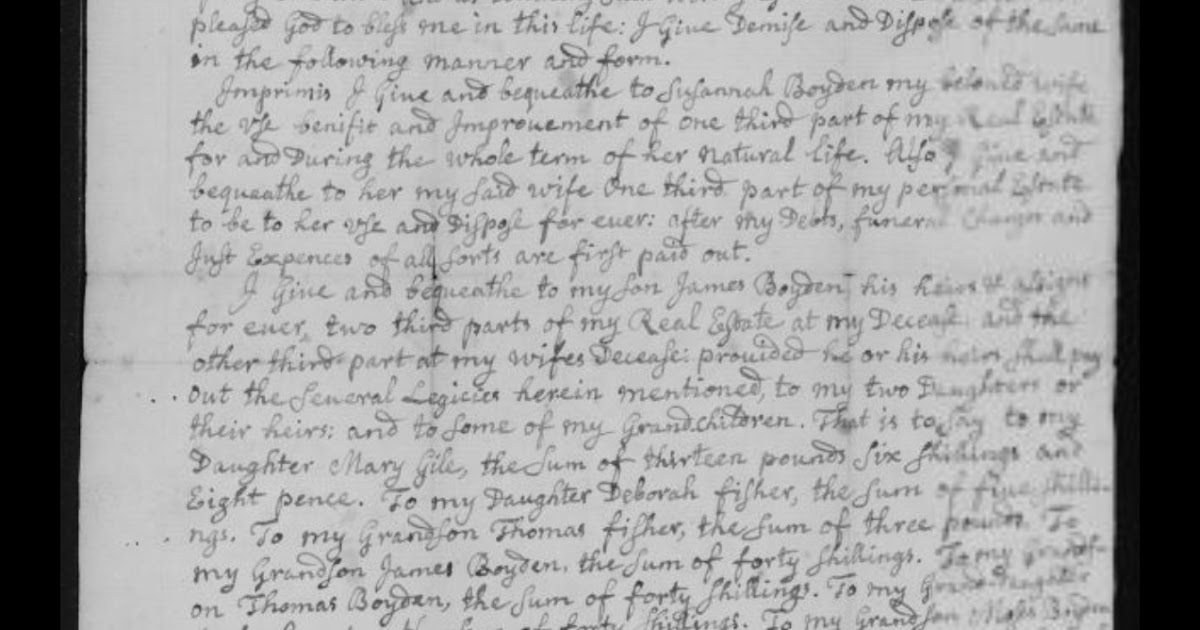 pleased God to bless me in this life: I Give Demise and Dispose of the same
in the following manner and form.
Imprimis I Give and bequeathe to Susannah Boyden my beloved wife
the Vse benifit and Improuement of one third part of my Real Estate
for and During the whole term of her natural life. Also I give and
bequeathe to her my said wife One third part of my personal Estate
to be to her Vse and Dispose for ever: after my Debts, funeral Charges and
Just Expences of all sorts are first paid out.
I Give and bequeathe to my son James Boyden his heirs & assigns
for euer, two third parts of my Real Estate at my Decease and the
other third part at my wifes Decease: provided he or his heirs shall pay
Out the Several Legicies herein mentioned, to my two Daughters or
their heirs: and to some of my Grandchildren. That is to say to my
Daughter Mary Gile, the sum of thirteen pounds six shillings and
Eight pence. To my Daughter Deborah fisher, the sum of five shilli-
ngs. To my Grandson Thomas fisher, the sum of three pounds. To
my Grandson James Boyden, the sum of forty shillings. To my Grands-
on Thomas Boyden, the sum of forty shillings. To my Grand-Daughter
of forty shillings. To my Grandson Boyden